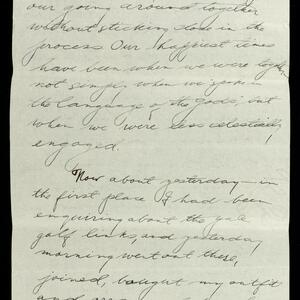 our going around together
without sticking close in the
process. Our happiest times
have been when we were together
not single, when we spoke in
the language of the gods, but
when we were less celestially
engaged.
Now about yesterday – in
the first place I had been
enquiring about the Yale
golf links, and yesterday
morning went out there,
joined, bought my outfit
and